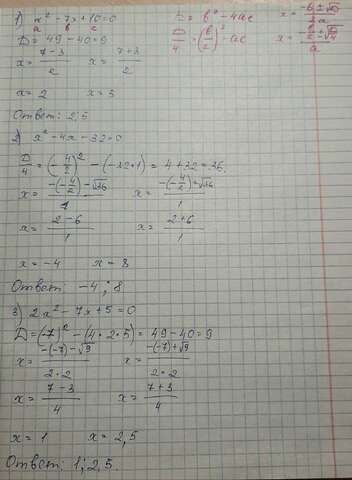 1) x² - 7x + 10 = 0
a b c
D = b² - 4ac
x = (-b ± √D)/2a
D = 49 - 40 = 9
D/4 = (b/2)² - ac
x = (-b/2 ± √D/4)/a
x = (7 - 3)/2 x = (7 + 3)/2
x = 2 x = 5
Ответ: 2; 5
2) x² - 4x - 32 = 0
D/4 = (-4/2)² - (-32·1) = 4 + 32 = 36.
x = (-(-4/2) - √36)/1 x = (-(-4/2) + √36)/1
x = (2 - 6)/1 x = (2 + 6)/1
x = -4 x = 8
Ответ: -4; 8
3) 2x² - 7x + 5 = 0
D = (-7)² - (4·2·5) = 49 - 40 = 9
x = (-(-7) - √9)/(2·2) x = (-(-7) + √9)/(2·2)
x = (7 - 3)/4 x = (7 + 3)/4
x = 1 x = 2,5
Ответ: 1; 2,5.